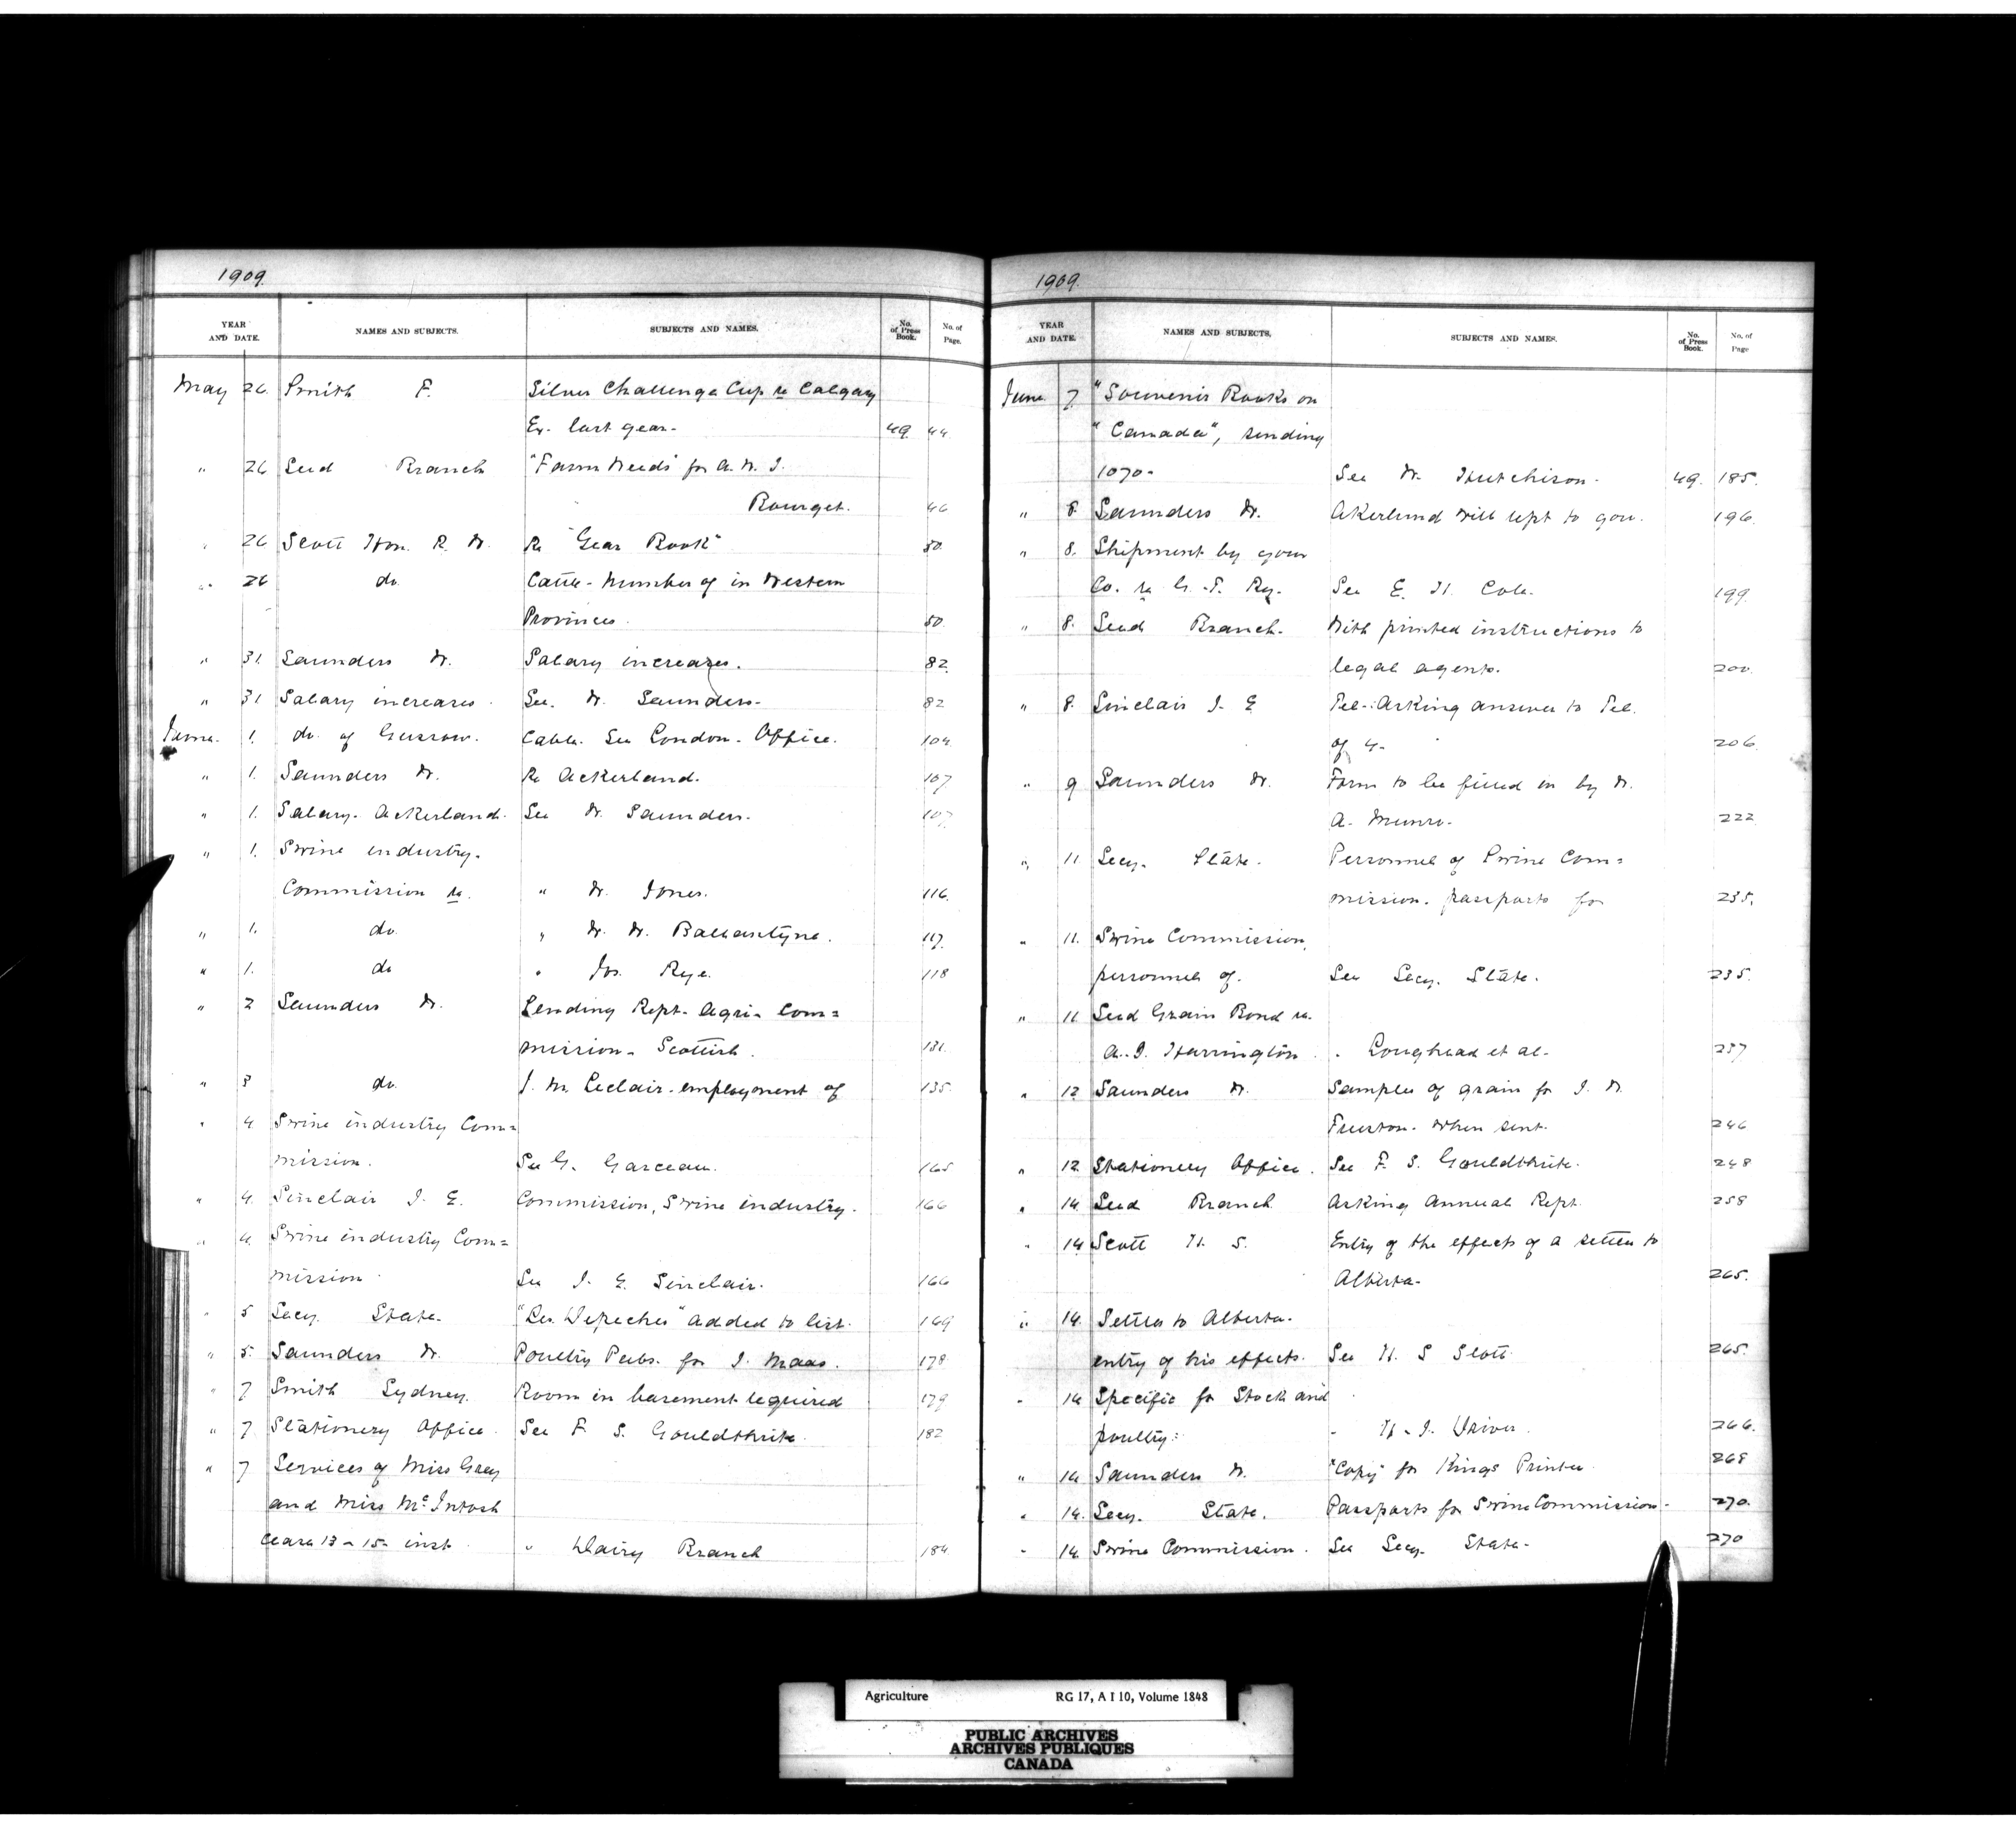 1909.
YEAR AND DATE. NAMES AND SUBJECTS. SUBJECTS AND NAMES. No. of Press Book. No. of Page.
May 26. Smith F. Silver Challenge Cup re Calgary
Ex. last year. 49. 44.
" 26 Seed Branch "Farm Weeds" for A. W. J.
Bourget. 46
" 26 Scott Hon. R. W. Re "Year Book" 50.
" 26 do. Cattle - Number of in Western
Provinces. 50.
" 31. Saunders W. Salary increases. 82.
" 31 Salary increases. See. W. Saunders. 82
June. 1. do. of Gussow. Cable. See London. Office. 104.
" 1. Saunders W. Re Ackerland. 107
" 1. Salary. Ackerland. See W. Saunders. 107.
" 1. Swine industry.
Commission re. " W. Jones. 116.
" 1. do. " W. W. Ballantyne. 117.
" 1. do " Jos. Rye. 118
" 2 Saunders W. Sending Rept. Agri. Com=
mission. Scottish. 131.
" 3 do. J. M. Leclair. employment of 135.
" 4 Swine industry Com=
mission. See G. Garceau. 165
" 4. Sinclair J. E. Commission, Swine industry. 166
" 4. Swine industry Com=
mission. See J. E. Sinclair. 166
" 5 Secy. State. "Les Depeches" added to list. 169
" 5. Saunders W. Poultry Pubs. for J. Maas. 178
" 7 Smith Sydney. Room in basement required 179
" 7 Stationery Office. See F. S. Gouldthrite. 182
" 7 Services of Miss Grey
and Miss McIntosh
cease 13 - 15 inst. " Dairy Branch 184.
1909.
YEAR AND DATE. NAMES AND SUBJECTS. SUBJECTS AND NAMES. No. of Press Book. No. of Page
June 7. "Souvenir Books on
"Canada", sending
1070. See W. Hutchison. 49. 185.
" 8. Saunders W. Akerlund will rept to you. 196.
" 8. Shipment by your
Co. re G. T. Ry. See E. H. Cole. 199.
" 8. Seed Branch. With printed instructions to
legal agents. 200.
" 8. Sinclair J. E Tel. Asking answer to Tel.
of 4. 206.
" 9 Saunders W. Form to be filled in by W.
A. Munro. 222
" 11 Secy. State. Personnel of Swine Com=
mission. passports for 235.
" 11. Swine Commission,
personnel of. See Secy. State. 235.
" 11 Seed Grain Bond re.
A. J. Harrington. " Loughead et al. 237
" 12 Saunders W. Samples of grain for J. W.
Fueston. When sent. 246
" 12 Stationery Office. See F. S. Gouldthrite. 248
" 14 Seed Branch Asking Annual Rept. 258
" 14 Scott H. S. Entry of the effects of a settler to
Alberta. 265.
" 14. Settler to Alberta.
entry of his effects. See H. S Scott. 265.
" 14 Specific for Stock and
poultry: " H. J. Driver. 266.
" 14 Saunders W. "Copy" for Kings Printer. 268
" 14. Secy. State. Passports for Swine Commission. 270.
" 14. Swine Commission. See Secy. State. 270
Agriculture RG 17, A I 10, Volume 1848
PUBLIC ARCHIVES
ARCHIVES PUBLIQUES
CANADA